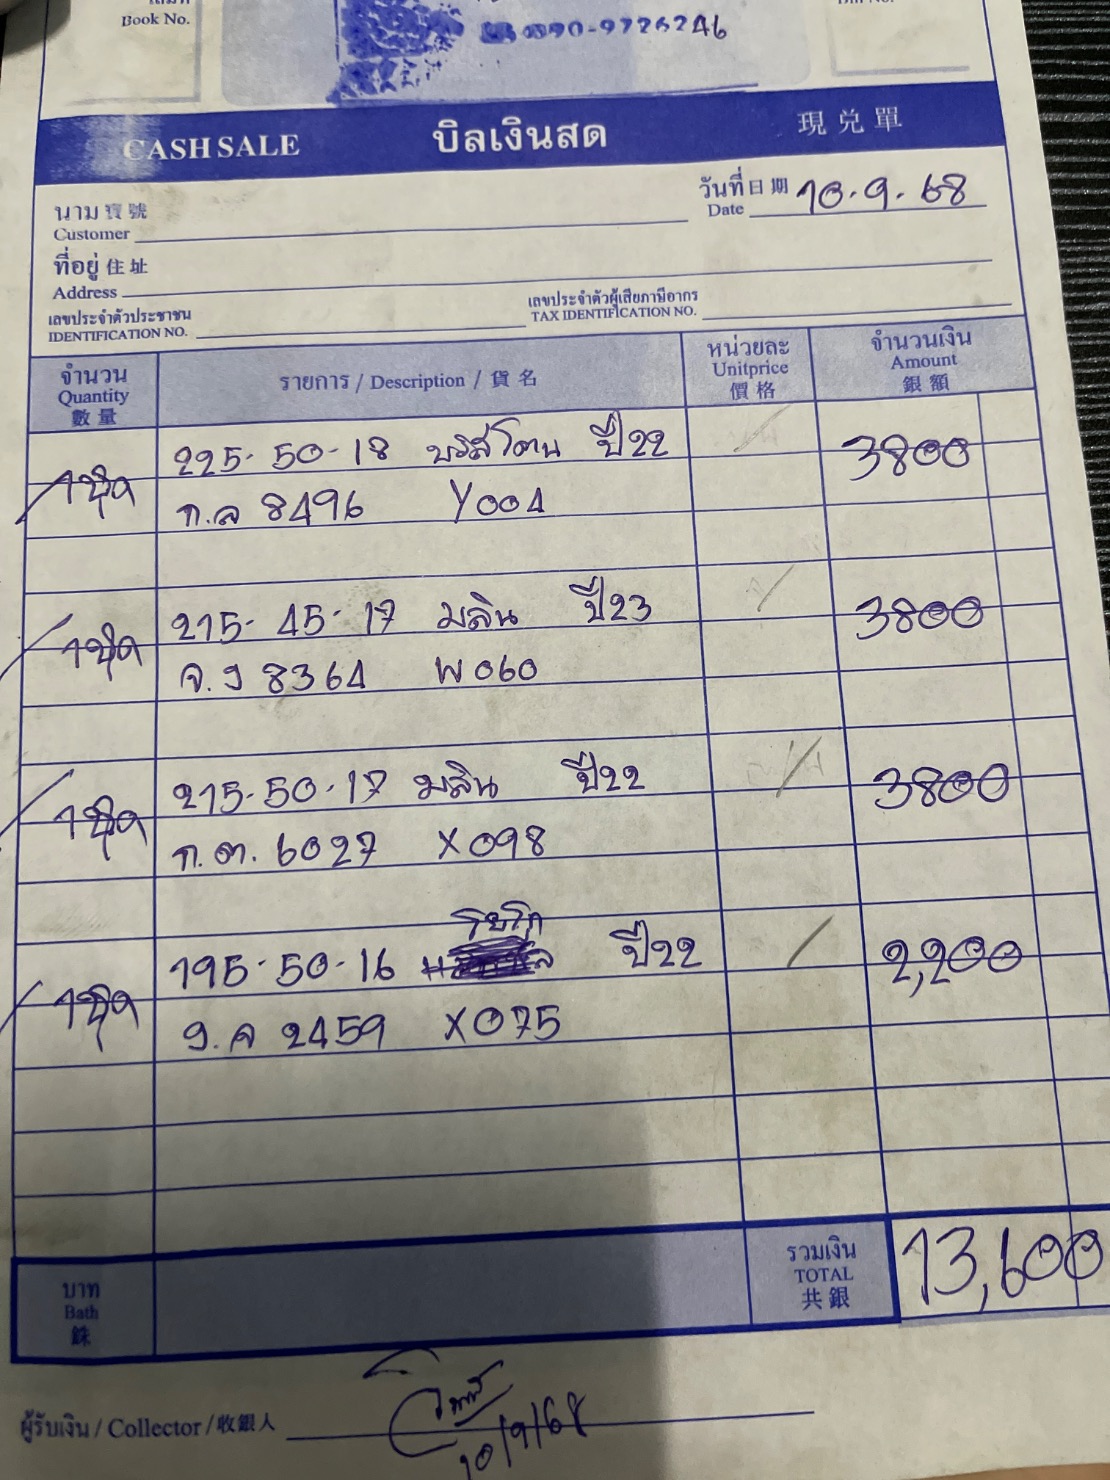 Book No.
090-9726246
CASH SALE บิลเงินสด 現兌單
วันที่ 日期 Date 10.9.68
นาม 寶號 Customer
ที่อยู่ 住址 Address
เลขประจำตัวประชาชน IDENTIFICATION NO. เลขประจำตัวผู้เสียภาษีอากร TAX IDENTIFICATION NO.
จำนวน Quantity 數量 รายการ / Description / 貨名 หน่วยละ Unitprice 價格 จำนวนเงิน Amount 銀額
1ชุด 225-50-18 บริสโตน ปี22 3800
ก.ล 8496 Y004
1ชุด 215-45-17 มลิน ปี23 3800
จ.ว 8364 W060
1ชุด 215-50-17 มลิน ปี22 3800
ก.ต. 6027 X098
โยโก
1ชุด 195-50-16 ปี22 2,200
2459 X075
บาท Bath 銖 รวมเงิน TOTAL 共銀 13,600
ผู้รับเงิน / Collector / 收銀人
10/9/68